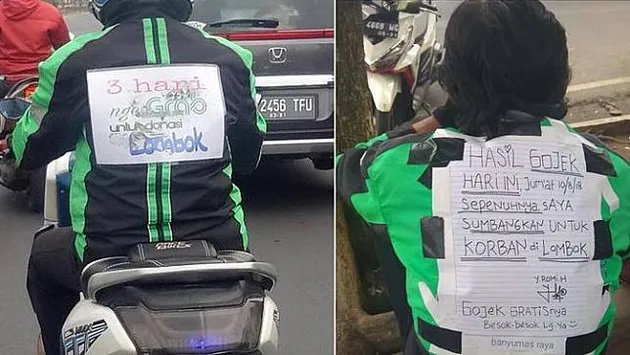 3 hari
ngeGrab
untuk donasi
Lombok
2456 TFU
HASIL GOJEK
HARI INI, Jum'at 10/8/18
Sepenuhnya, SAYA
SUMBANGKAN UNTUK
KORBAN di LOMBOK
Y. ROMI.H
GOJEK GRATISnya
Besok-besok Lg. Ya
banyumas raya